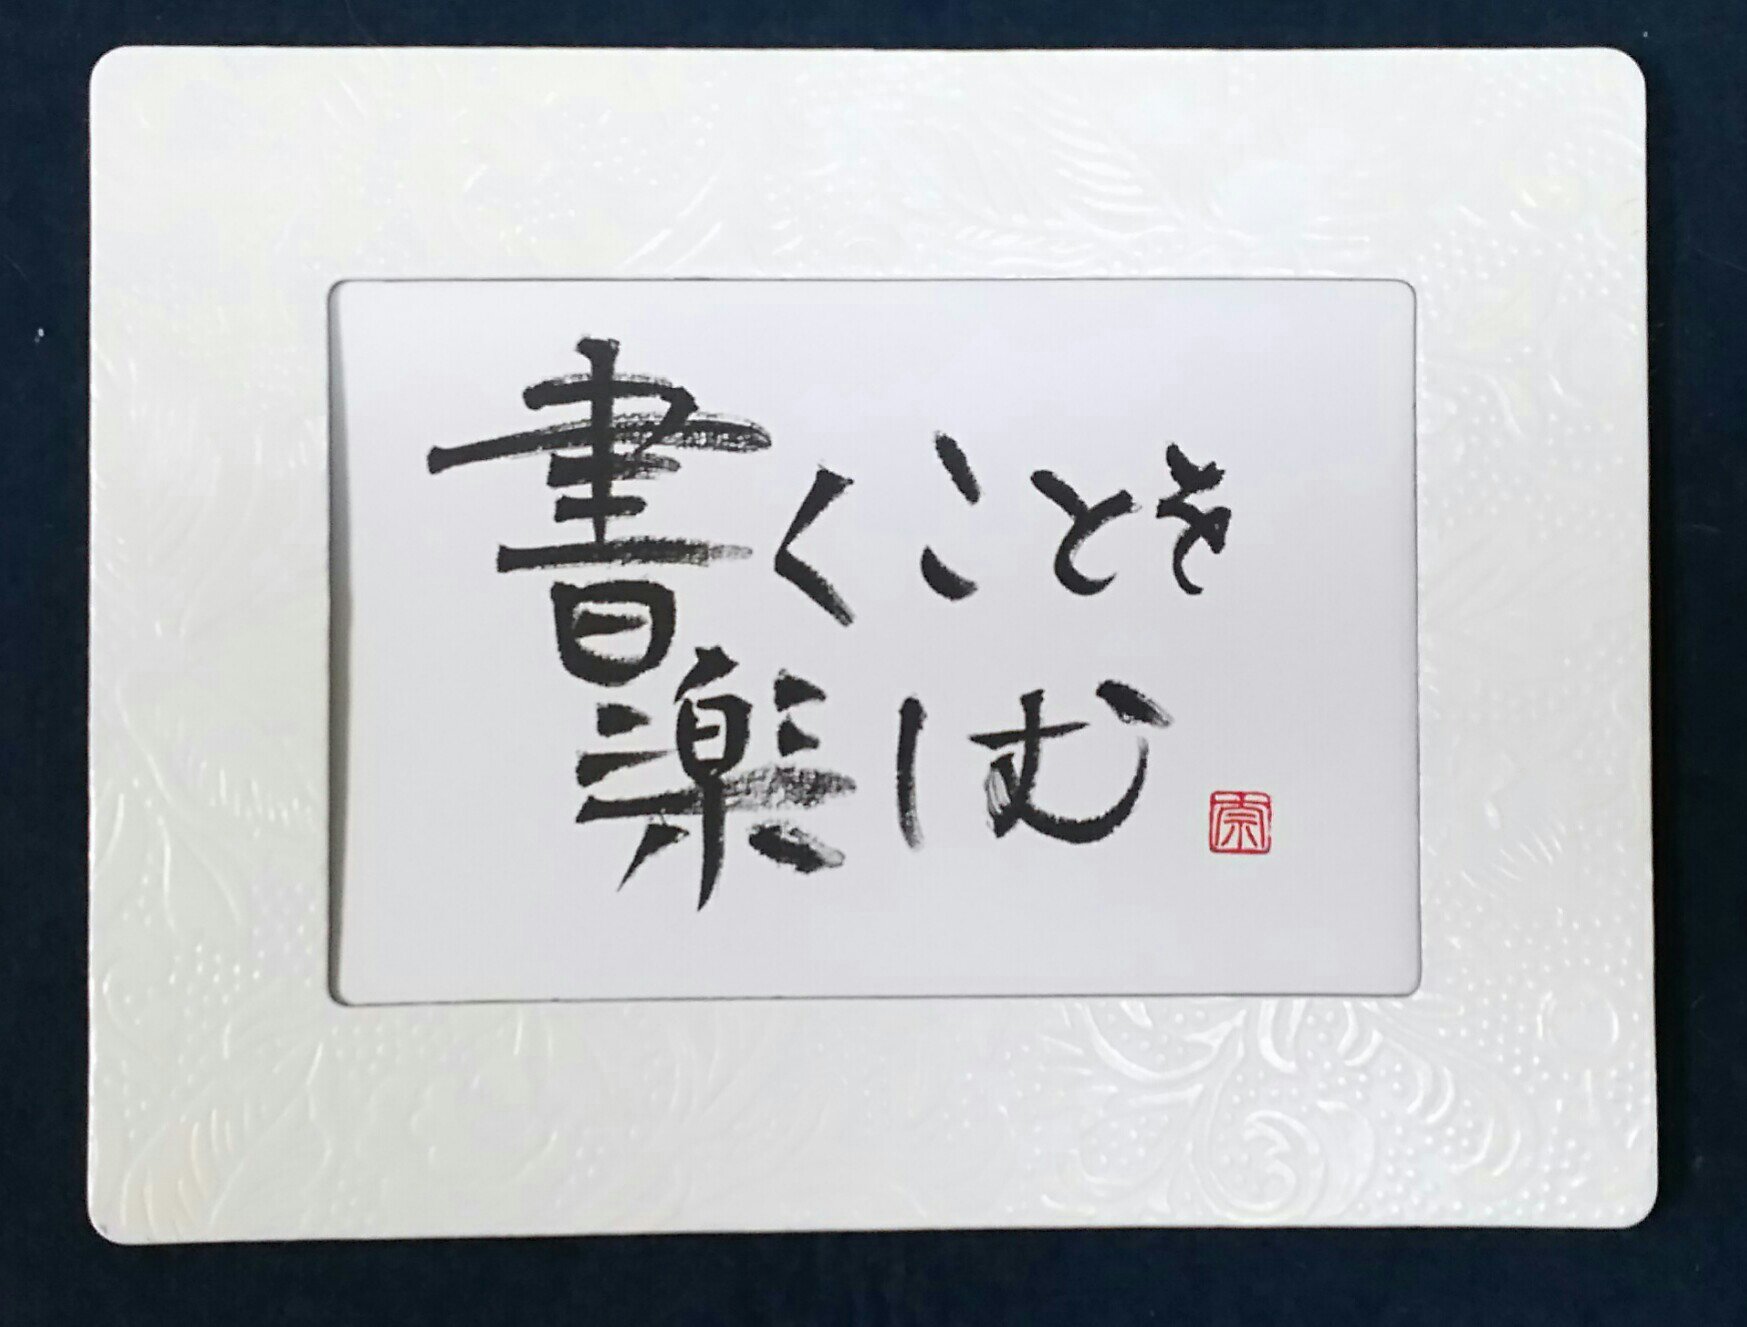 書くことを
楽しむ
宗